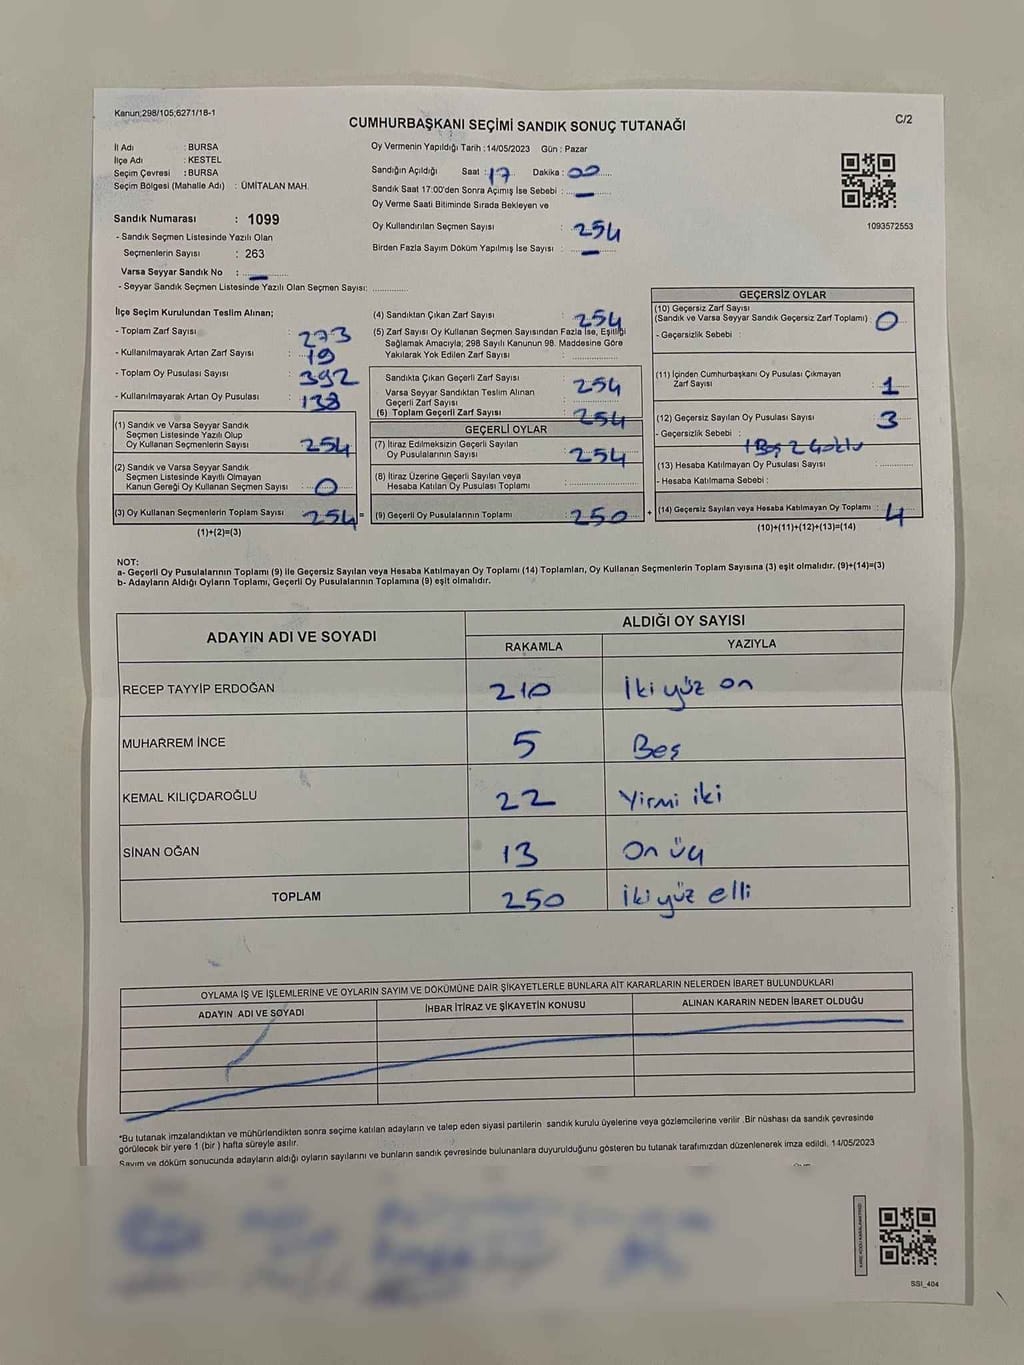 Kanun;298/105;6271/18-1
CUMHURBAŞKANI SEÇİMİ SANDIK SONUÇ TUTANAĞI
C/2
İl Adı : BURSA
İlçe Adı : KESTEL
Seçim Çevresi : BURSA
Seçim Bölgesi (Mahalle Adı) : ÜMİTALAN MAH.
Sandık Numarası : 1099
- Sandık Seçmen Listesinde Yazılı Olan
Seçmenlerin Sayısı : 263
Varsa Seyyar Sandık No : —
- Seyyar Sandık Seçmen Listesinde Yazılı Olan Seçmen Sayısı: ..............
Oy Vermenin Yapıldığı Tarih : 14/05/2023 Gün : Pazar
Sandığın Açıldığı Saat : 17 Dakika : 00
Sandık Saat 17:00'den Sonra Açımış İse Sebebi : —
Oy Verme Saati Bitiminde Sırada Bekleyen ve
Oy Kullandırılan Seçmen Sayısı : 254
Birden Fazla Sayım Döküm Yapılmış İse Sayısı : —
1093572553
İlçe Seçim Kurulundan Teslim Alınan;
- Toplam Zarf Sayısı : 273
- Kullanılmayarak Artan Zarf Sayısı : 19
- Toplam Oy Pusulası Sayısı : 392
- Kullanılmayarak Artan Oy Pusulası : 138
(1) Sandık ve Varsa Seyyar Sandık
Seçmen Listesinde Yazılı Olup
Oy Kullanan Seçmenlerin Sayısı : 254
(2) Sandık ve Varsa Seyyar Sandık
Seçmen Listesinde Kayıtlı Olmayan
Kanun Gereği Oy Kullanan Seçmen Sayısı : 0
(3) Oy Kullanan Seçmenlerin Toplam Sayısı : 254 =
(1)+(2)=(3)
(4) Sandıktan Çıkan Zarf Sayısı : 254
(5) Zarf Sayısı Oy Kullanan Seçmen Sayısından Fazla İse, Eşitliği
Sağlamak Amacıyla; 298 Sayılı Kanunun 98. Maddesine Göre
Yakılarak Yok Edilen Zarf Sayısı : ..............
Sandıkta Çıkan Geçerli Zarf Sayısı : 254
Varsa Seyyar Sandıktan Teslim Alınan
Geçerli Zarf Sayısı :
(6) Toplam Geçerli Zarf Sayısı : 254
GEÇERLİ OYLAR
(7) İtiraz Edilmeksizin Geçerli Sayılan
Oy Pusulalarının Sayısı : 254
(8) İtiraz Üzerine Geçerli Sayılan veya
Hesaba Katılan Oy Pusulası Toplamı :
(9) Geçerli Oy Pusulalarının Toplamı : 250 +
GEÇERSİZ OYLAR
(10) Geçersiz Zarf Sayısı
(Sandık ve Varsa Seyyar Sandık Geçersiz Zarf Toplamı) : 0
- Geçersizlik Sebebi :
(11) İçinden Cumhurbaşkanı Oy Pusulası Çıkmayan
Zarf Sayısı : 1
(12) Geçersiz Sayılan Oy Pusulası Sayısı : 3
- Geçersizlik Sebebi :
1 Boş 2
(13) Hesaba Katılmayan Oy Pusulası Sayısı :
- Hesaba Katılmama Sebebi :
(14) Geçersiz Sayılan veya Hesaba Katılmayan Oy Toplamı : 4
(10)+(11)+(12)+(13)=(14)
NOT:
a- Geçerli Oy Pusulalarının Toplamı (9) ile Geçersiz Sayılan veya Hesaba Katılmayan Oy Toplamı (14) Toplamları, Oy Kullanan Seçmenlerin Toplam Sayısına (3) eşit olmalıdır. (9)+(14)=(3)
b- Adayların Aldığı Oyların Toplamı, Geçerli Oy Pusulalarının Toplamına (9) eşit olmalıdır.
ADAYIN ADI VE SOYADI
ALDIĞI OY SAYISI
RAKAMLA YAZIYLA
RECEP TAYYİP ERDOĞAN 210 İki yüz on
MUHARREM İNCE 5 Beş
KEMAL KILIÇDAROĞLU 22 Yirmi iki
SİNAN OĞAN 13 On üç
TOPLAM 250 İki yüz elli
OYLAMA İŞ VE İŞLEMLERİNE VE OYLARIN SAYIM VE DÖKÜMÜNE DAİR ŞİKAYETLERLE BUNLARA AİT KARARLARIN NELERDEN İBARET BULUNDUKLARI
ADAYIN ADI VE SOYADI İHBAR İTİRAZ VE ŞİKAYETİN KONUSU ALINAN KARARIN NEDEN İBARET OLDUĞU
*Bu tutanak imzalandıktan ve mühürlendikten sonra seçime katılan adayların ve talep eden siyasi partilerin sandık kurulu üyelerine veya gözlemcilerine verilir .Bir nüshası da sandık çevresinde
görülecek bir yere 1 (bir ) hafta süreyle asılır.
Sayım ve döküm sonucunda adayların aldığı oyların sayılarını ve bunların sandık çevresinde bulunanlara duyurulduğunu gösteren bu tutanak tarafımızdan düzenlenerek imza edildi. 14/05/2023
SSI_404